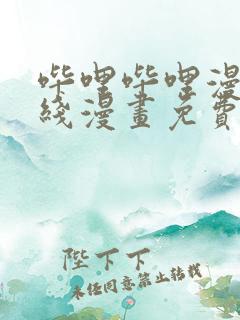 哔哩哔哩漫
线漫畫免費
陛下下
未经同意禁止转载